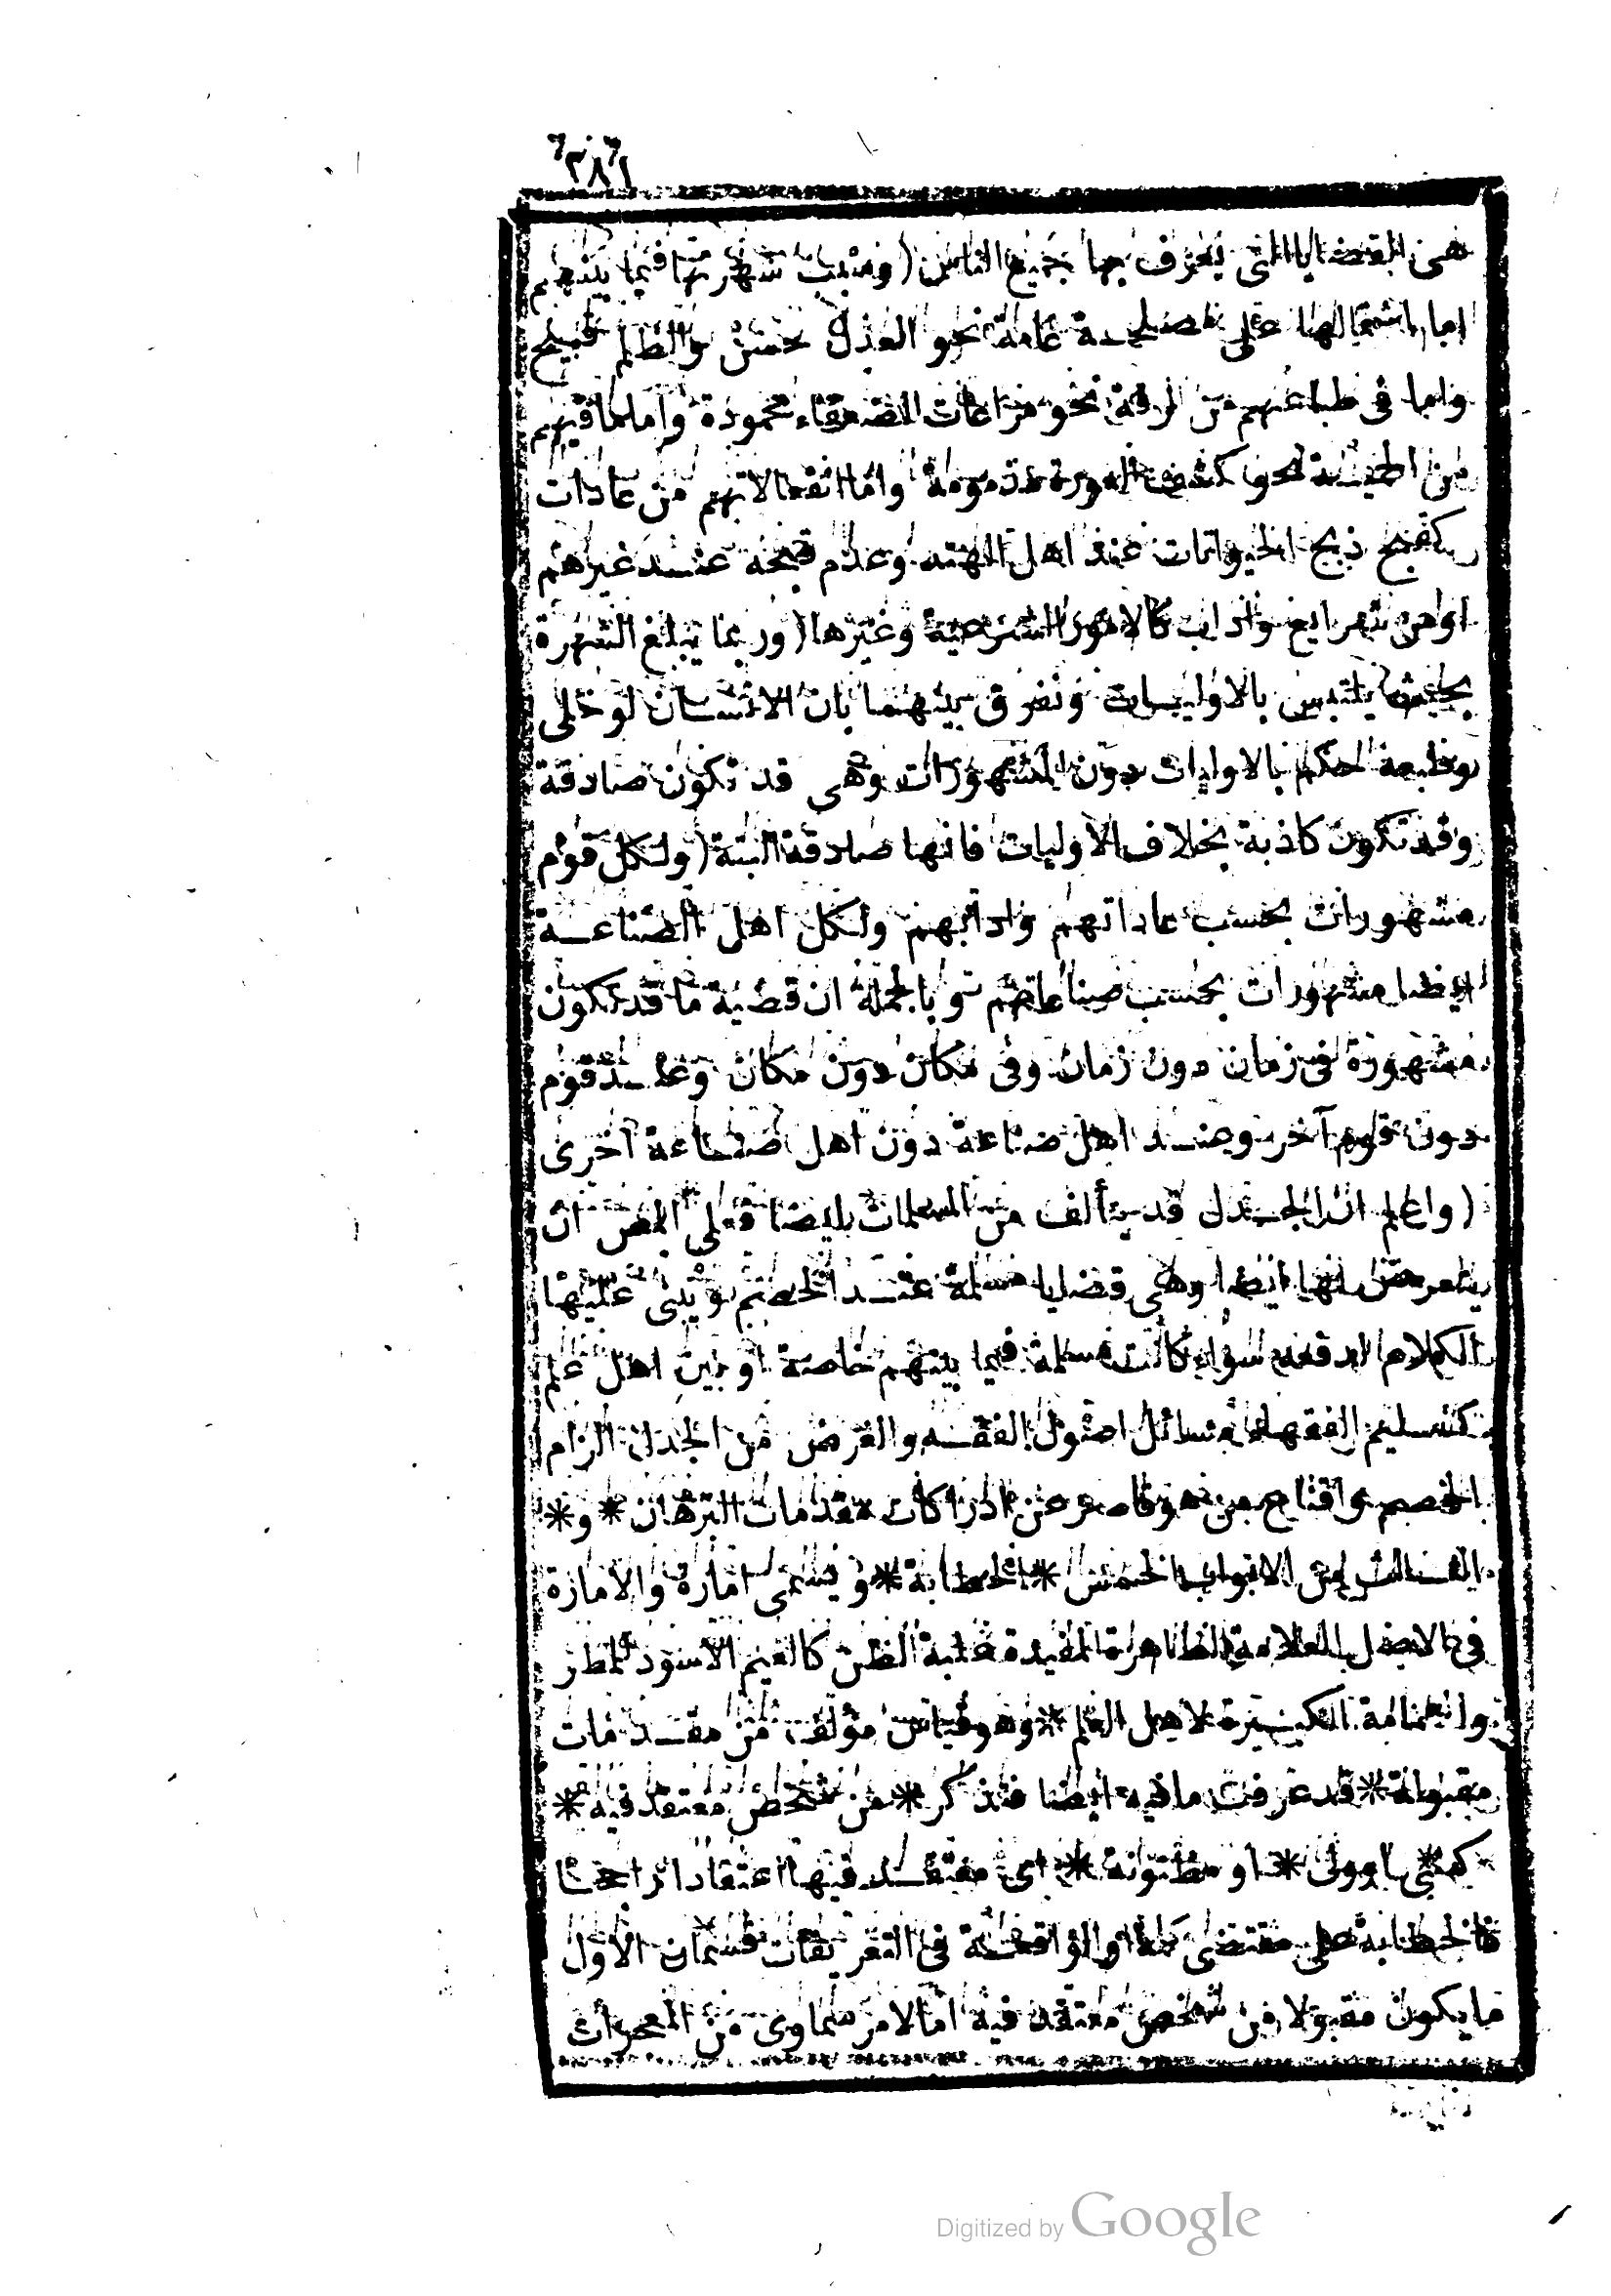 ٣٨٦
هى القضايا التى يعترف بها جميع الناس ( وسبب شهرتها فيما بينهم
اما اشتمالها على مصلحة عامة نحو العدل حسن والظلم قبيح
واما فى طباعهم من الرقة نحو مراعات الضعفاء محمودة واما ما فيهم
من الحمية نحو كشف العورة مذمومة واما انفعالاتهم من عادات
كقبح ذبح الحيوانات عند اهل الهند وعدم قبحه عند غيرهم
او من شرايع واداب كالامور الشرعية وغيرها ( وربما يبلغ الشهرة
بحيث يلتبس بالاوليات ونفرق بينهما بان الانسان لو خلى
وطبعه لحكم بالاوليات دون المشهورات وهى قد تكون صادقة
وقد تكون كاذبة بخلاف الاوليات فانها صادقة البتة ( ولكل قوم
مشهورات بحسب عاداتهم وادابهم ولكل اهل الصناعة
ايضا مشهورات بحسب صناعاتهم وبالجملة ان قضية ما قد تكون
مشهورة فى زمان دون زمان وفى مكان دون مكان وعند قوم
دون قوم آخر وعند اهل صناعة دون اهل صناعة آخرى
( واعلم ان الجدل قد يتألف من المسلمات ايضا فعلى المص ان
يتعرض لها ايضا وهى قضايا مسلمة عند الخصم ويبنى عليها
الكلام لدفعه سواء كانت مسلمة فيما بينهم خاصة او بين اهل علم
كتسليم الفقهاء مسائل اصول الفقه والغرض من الجدل الزام
الخصم واقناع من هو قاصر عن ادراكات مقدمات البرهان * و *
الثالث من الابواب الخمس * الخطابة * ويسمى امارة والامارة
فى الاصل العلامة الظاهرة المفيدة غلبة الظن كالغيم الاسود للمطر
والعمامة الكبيرة لاهل العلم * وهو قياس مؤلف من مقدمات
مقبولة * قد عرفت ما فيه ايضا فتذكر * من شخص معتقد فيه *
كنبى او ولى * او مظنونة * اى معتقد فيها اعتقادا راجحا
فالخطابة على مقتضى كلمة او الواقعة فى التعريفات قسمان الاول
ما يكون مقبولا من شخص معتقد فيه اما لامر سماوى من المعجزات
Digitized by Google